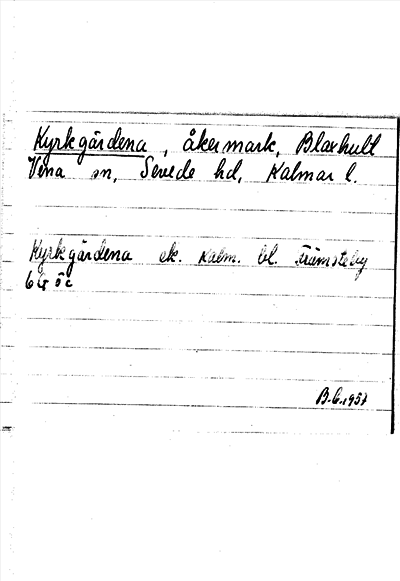 Kyrkgärdena, åkermark, Blaxhult
Vena sn, Sevede hd, Kalmar l.
Kyrkgärdena ek. Kalm. bl. Främsteby
6G öc
B.G. 1957